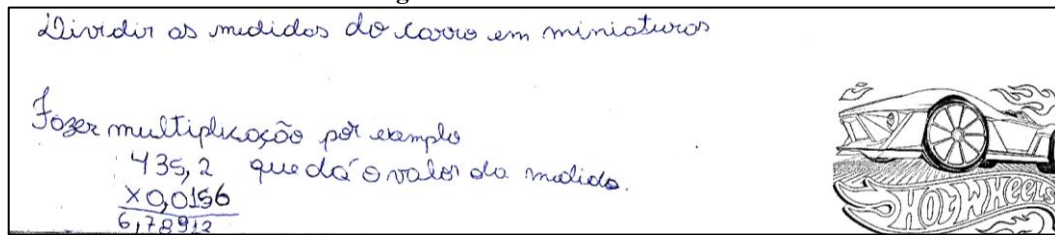 Dividir as medidas do carro em miniaturas
Fazer multiplicação por exemplo
435,2 que dá o valor da medida.
X0,0156
6,78912
HOT WHEELS